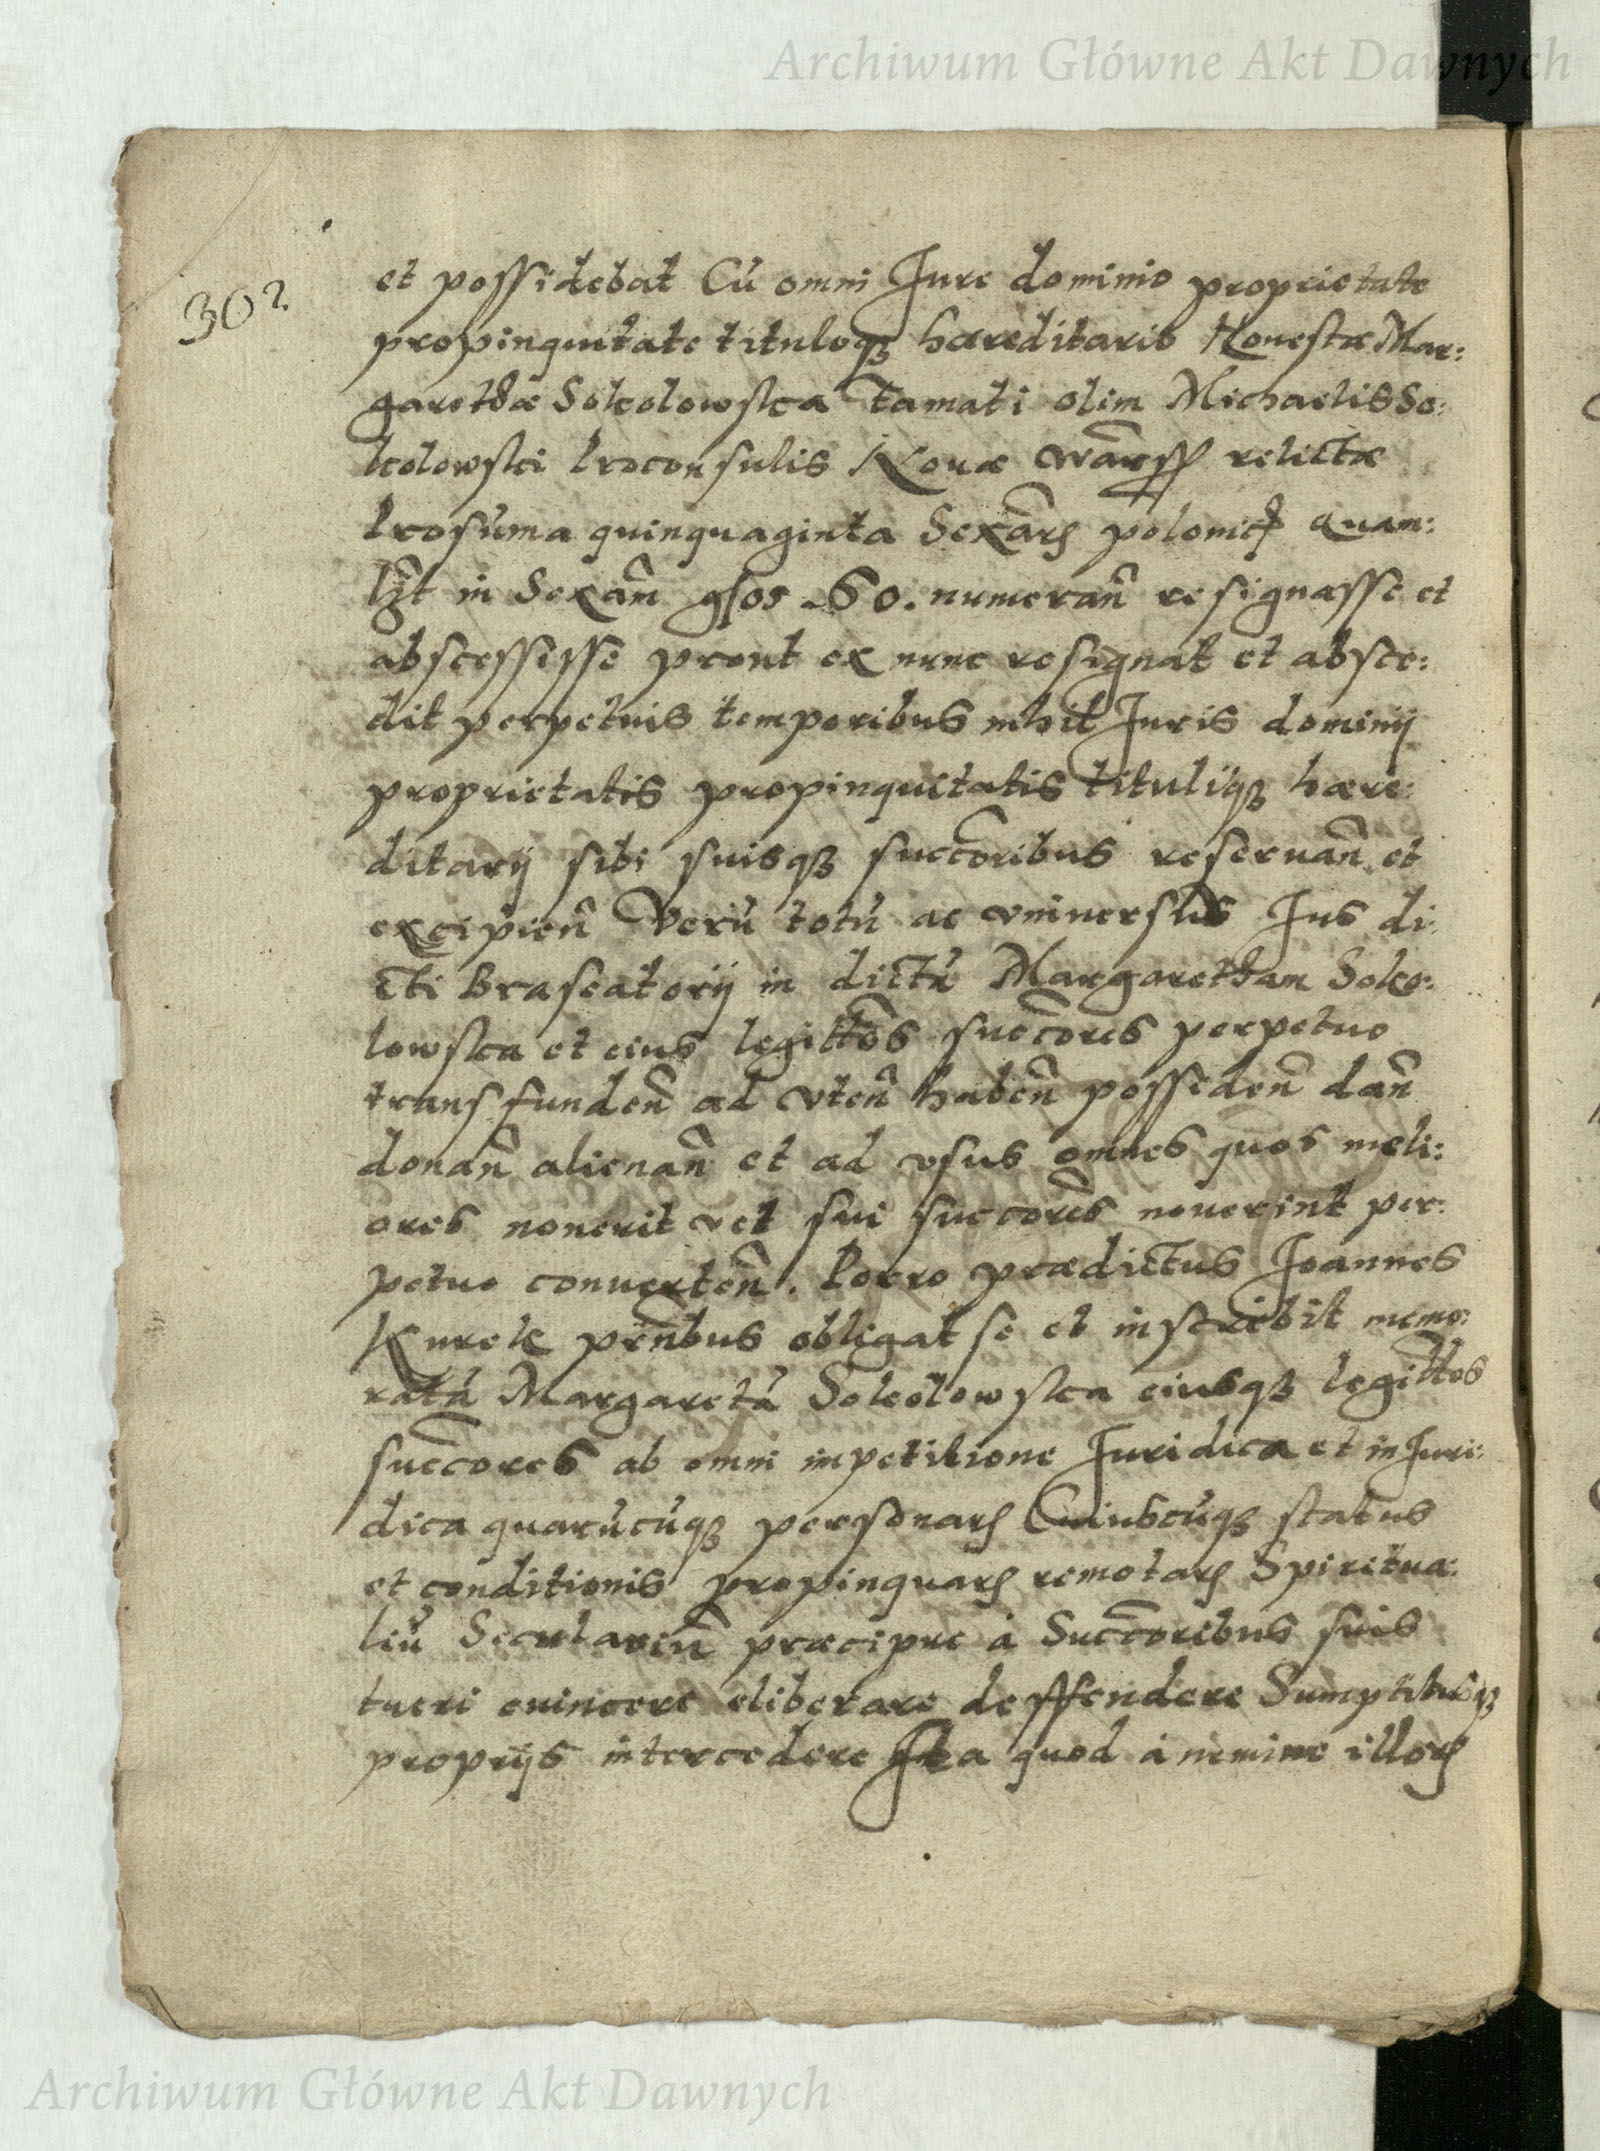 Archiwum Główne Akt Dawnych
302
et possidebat Cū omni Jure dominio proprietate
propinquitate tituloqꝫ hæreditario Honestæ Mar:
garethæ Sokolowska famati olim Michaelis So:
kolowski Proconsulis Nouæ relictæ
Pro sūma quinquaginta Sexāꝝ polonic̄ quam:
lꝫt in Sexān gꝛos 60. numerān̄ resignasse et
abscessisse prout ex nunc resignat et absce:
dit perpetuis temporibus nihil Juris dominij
proprietatis propinquitatis tituliqꝫ hære:
ditarij sibi suisqꝫ succōribus reseruan̄ et
excipien̄ Verū totū ac vniuersus Jus di:
cti Braseatorij in dictā Margaretham Soko:
lowska et eius legittōs succōres perpetuo
transfunden̄ ad vten̄ haben̄ posseden̄ dan̄
donan̄ alienan̄ et ad vsus omnes quos meli:
ores nouerit vel sui succōres nouerint per:
petuo conuerten̄. Porro prædictus Joannes
Kurek pr̄ntibus obligat se et inscribit memo:
ratā Margaretā Sokolowska eiusqꝫ legittos
succōres ab omni inpetitione Juridica et inJuri:
dica quarūcūqꝫ personaꝝ Cuiuscūqꝫ status
et conditionis propinquaꝝ remotaꝝ Spiritua:
liū Seculariū præcipue à Succōribus suis
tueri euincere eliberare deffendere Sumptibusqꝫ
proprijs intercedere Ita quod à nemine illoꝝ
Archiwum Główne Akt Dawnych